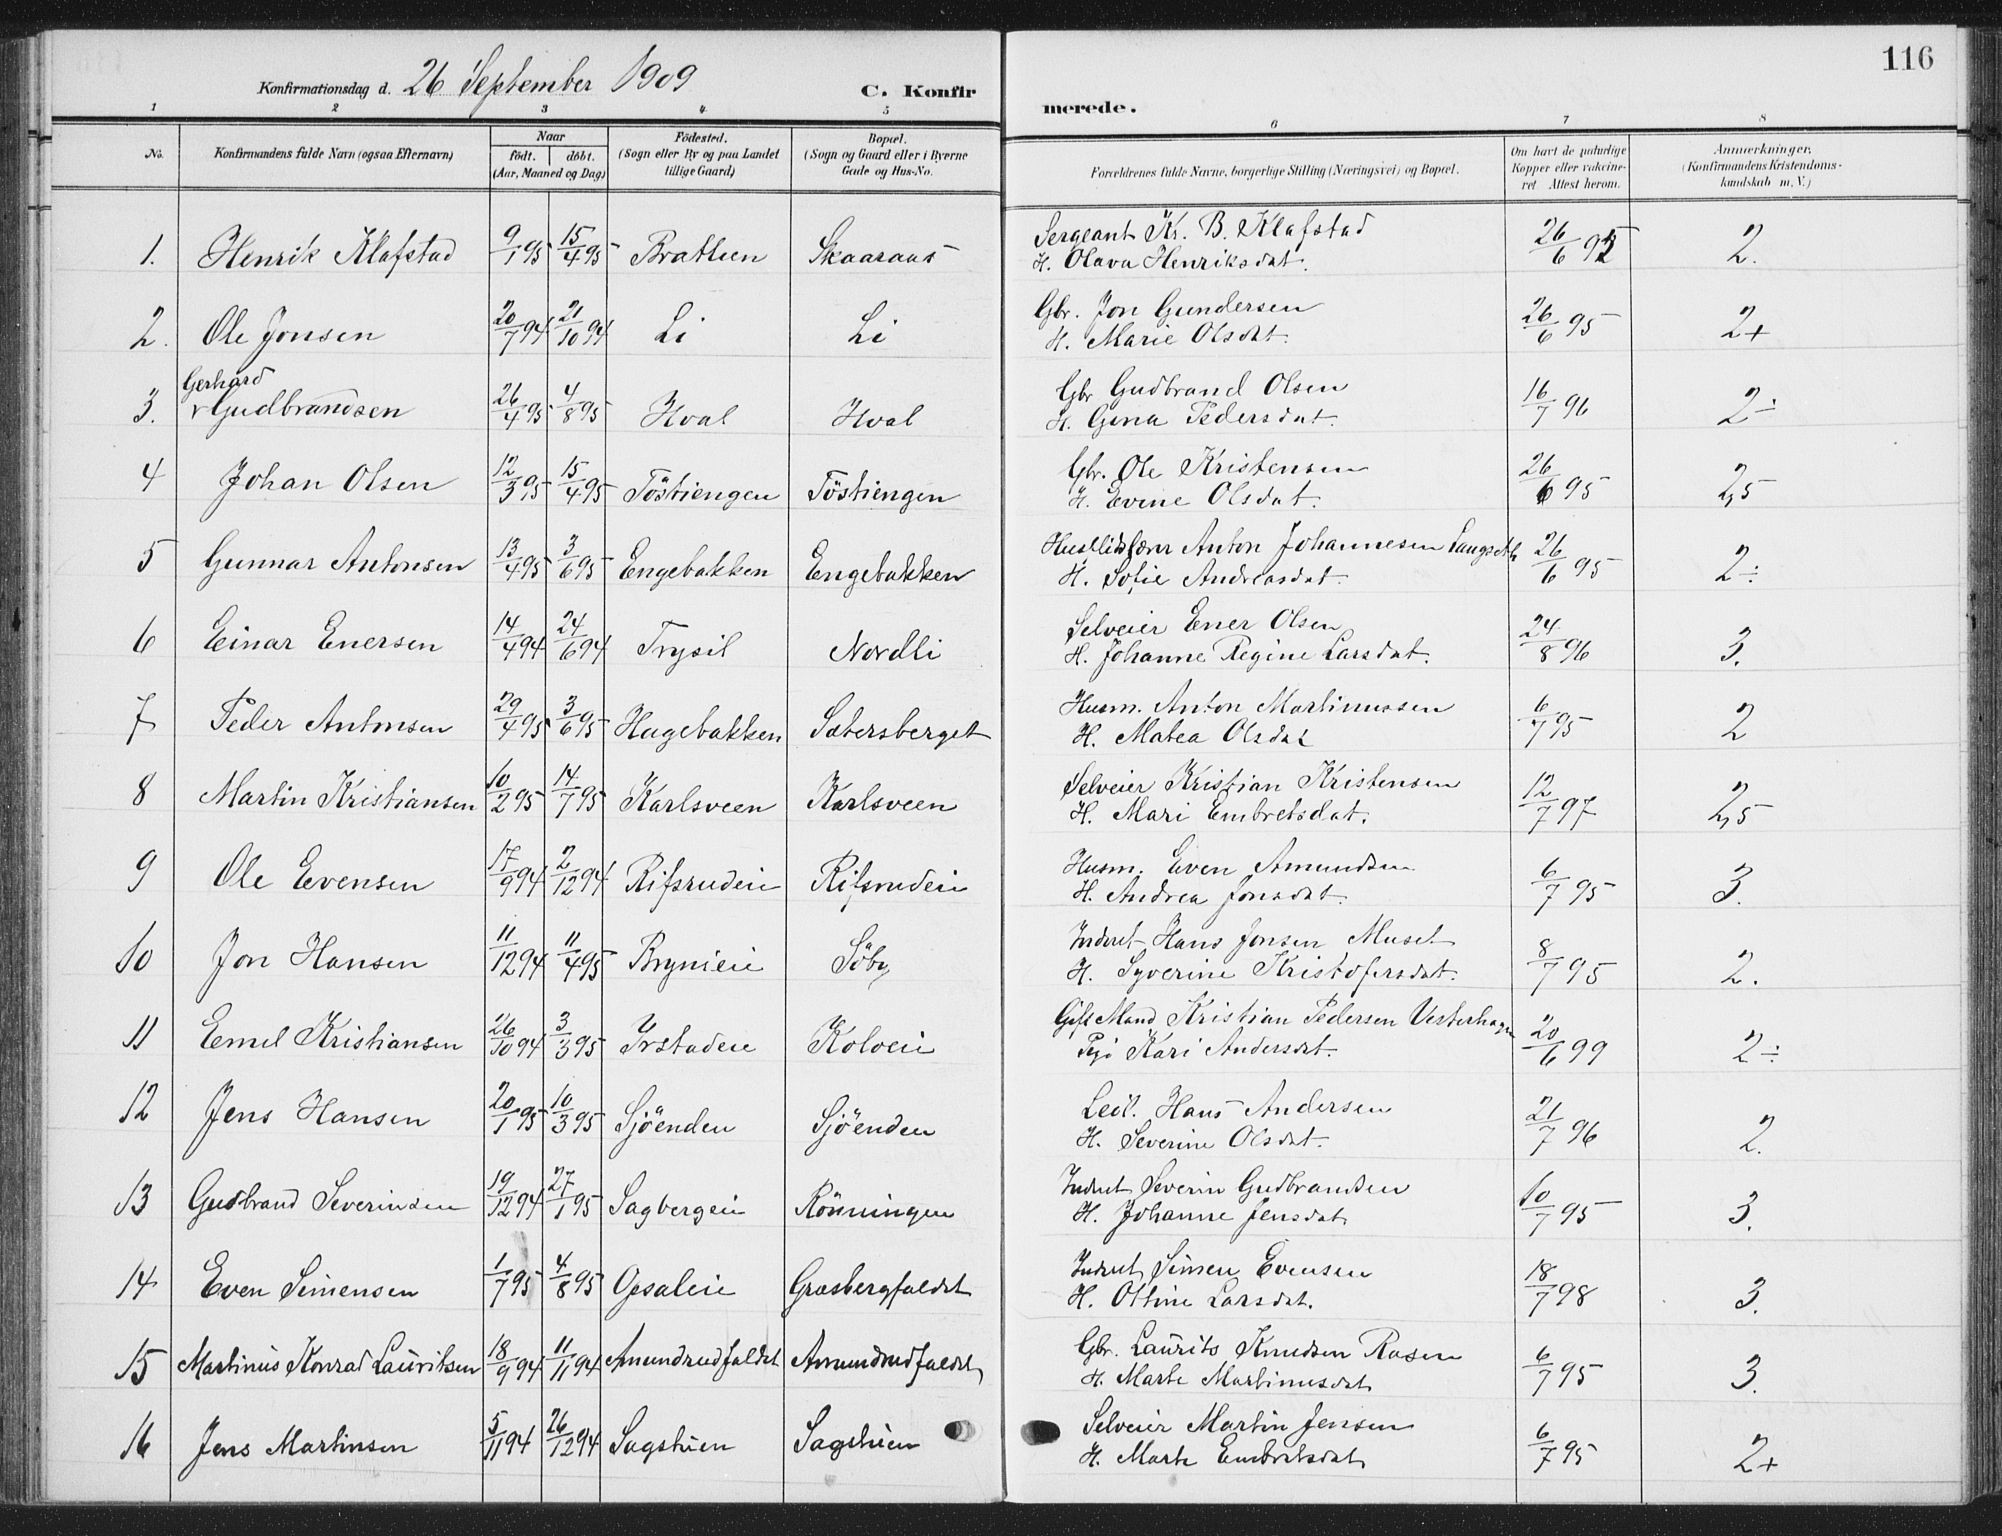 116
Konfirmationsdag d. 26 September 1909 C. Konfirmerede.
1 2 3 4 5 6 7 8
No. Konfirmandens fulde Navn (ogsaa Efternavn) Naar födt. döbt. (Aar, Maaned og Dag) Födested. (Sogn eller By og paa Landet tillige Gaard) Bopæl. (Sogn og Gaard eller i Byerne Gade og Hus-No. Forældrenes fulde Navne, borgerlige Stilling (Næringsvei) og Bopæl. Om havt de naturlige Kopper eller vakcineret Attest herom. Anmærkninger, (Konfirmandens Kristendomskundskab m. V.)
1. Henrik Klafstad 9/1 95 15/4 95 Bratlien Skaaraas Sergeant Kr. B. Klafstad 26/6 95 2.
H. Olava Henriksdat.
2. Ole Jonsen 20/7 94 21/10 94 Li Li Gbr. Jon Gundersen 26/6 95 2+
H. Marie Olsdat.
3. Gerhard Gudbrandsen 26/4 95 4/8 95 Hval Hval Gbr Gudbrand Olsen 16/7 96 2÷
H. Gina Pedersdat.
4 Johan Olsen 12/3 95 15/4 95 Töstiengen Töstiengen Gbr. Ole Kristensen 26/6 95 2,5
H. Evine Olsdat.
5 Gunnar Antonsen 13/4 95 3/6 95 Engebakken Engebakken Anton Johannesen 26/6 95 2÷
H. Sofie Andreasdat.
6 Einar Enersen 14/4 94 24/6 94 Trysil Nordli Selveier Ener Olsen 24/8 96 3.
H. Johanne Regine Larsdat.
7 Peder Antonsen 29/4 95 3/6 95 Hagebakken Sætersberget Husm. Anton Martinussen 6/7 95 2
H. Matea Olsdat
8 Martin Kristiansen 10/2 95 14/7 95 Karlsveen Karlsveen Selveier Kristian Kristensen 12/7 97 2,5
H. Mari Embretsdat.
9 Ole Evensen 17/9 94 2/12 94 Rifsrudeie Rifsrudeie Husm. Even Amundsen 6/7 95 3.
H. Andrea Jonsdat.
10 Jon Hansen 11/12 94 11/4 95 Brynieie Söby Inderst Hans Jonsen Muset 8/7 95 2.
H. Syverine Kristofersdat.
11 Emil Kristiansen 26/10 94 3/3 95 Yrstadeie Kolveie Gift Mand Kristian Pedersen Vesterhagen 20/6 99 2÷
Kari Andersdat.
12 Jens Hansen 20/1 95 10/3 95 Sjöenden Sjöenden Leil. Hans Andersen 21/7 96 2.
H. Severine Olsdat.
13 Gudbrand Severinsen 19/12 94 27/1 95 Sagbergeie Rönningen Inderst Severin Gudbrandsen 10/7 95 3.
H. Johanne Jensdat.
14 Even Simensen 1/7 95 4/8 95 Opsaleie Græsbergfaldet Inderst Simen Evensen 18/7 98 3.
H. Ottine Larsdat.
15 Martinus Konrad Lauritsen 18/9 94 11/11 94 Amundrudfaldet Amundrudfaldet Gbr. Laurits Knudsen Rasen 6/7 95 3.
H. Marte Martinusdat
16 Jens Martinsen 5/11 94 26/12 94 Sagstuen Sagstuen Selveier Martin Jensen 6/7 95 2+
H. Marte Embretsdat